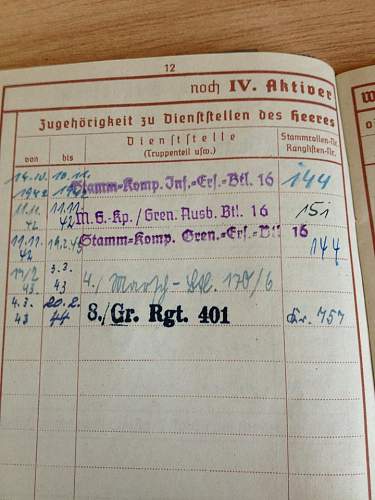 12
noch IV. Aktiver
Zugehörigkeit zu Dienststellen des Heeres
von bis Dienststelle (Truppenteil usw.) Stammrollen-Nr. Ranglisten-Nr.
1942 Stamm-Komp. Inf.-Ers.-Btl. 16 144
11.11. 42 11.11. 42 M.G.-Kp./Gren. Ausb. Btl. 16 151
11.11. 42 Stamm-Komp. Gren.-Ers.-Btl. 16 144
43 3.3. 43 4./ Marsch-Btl. 170/6
4.3. 43 20.2. 44 8./Gr. Rgt. 401 757